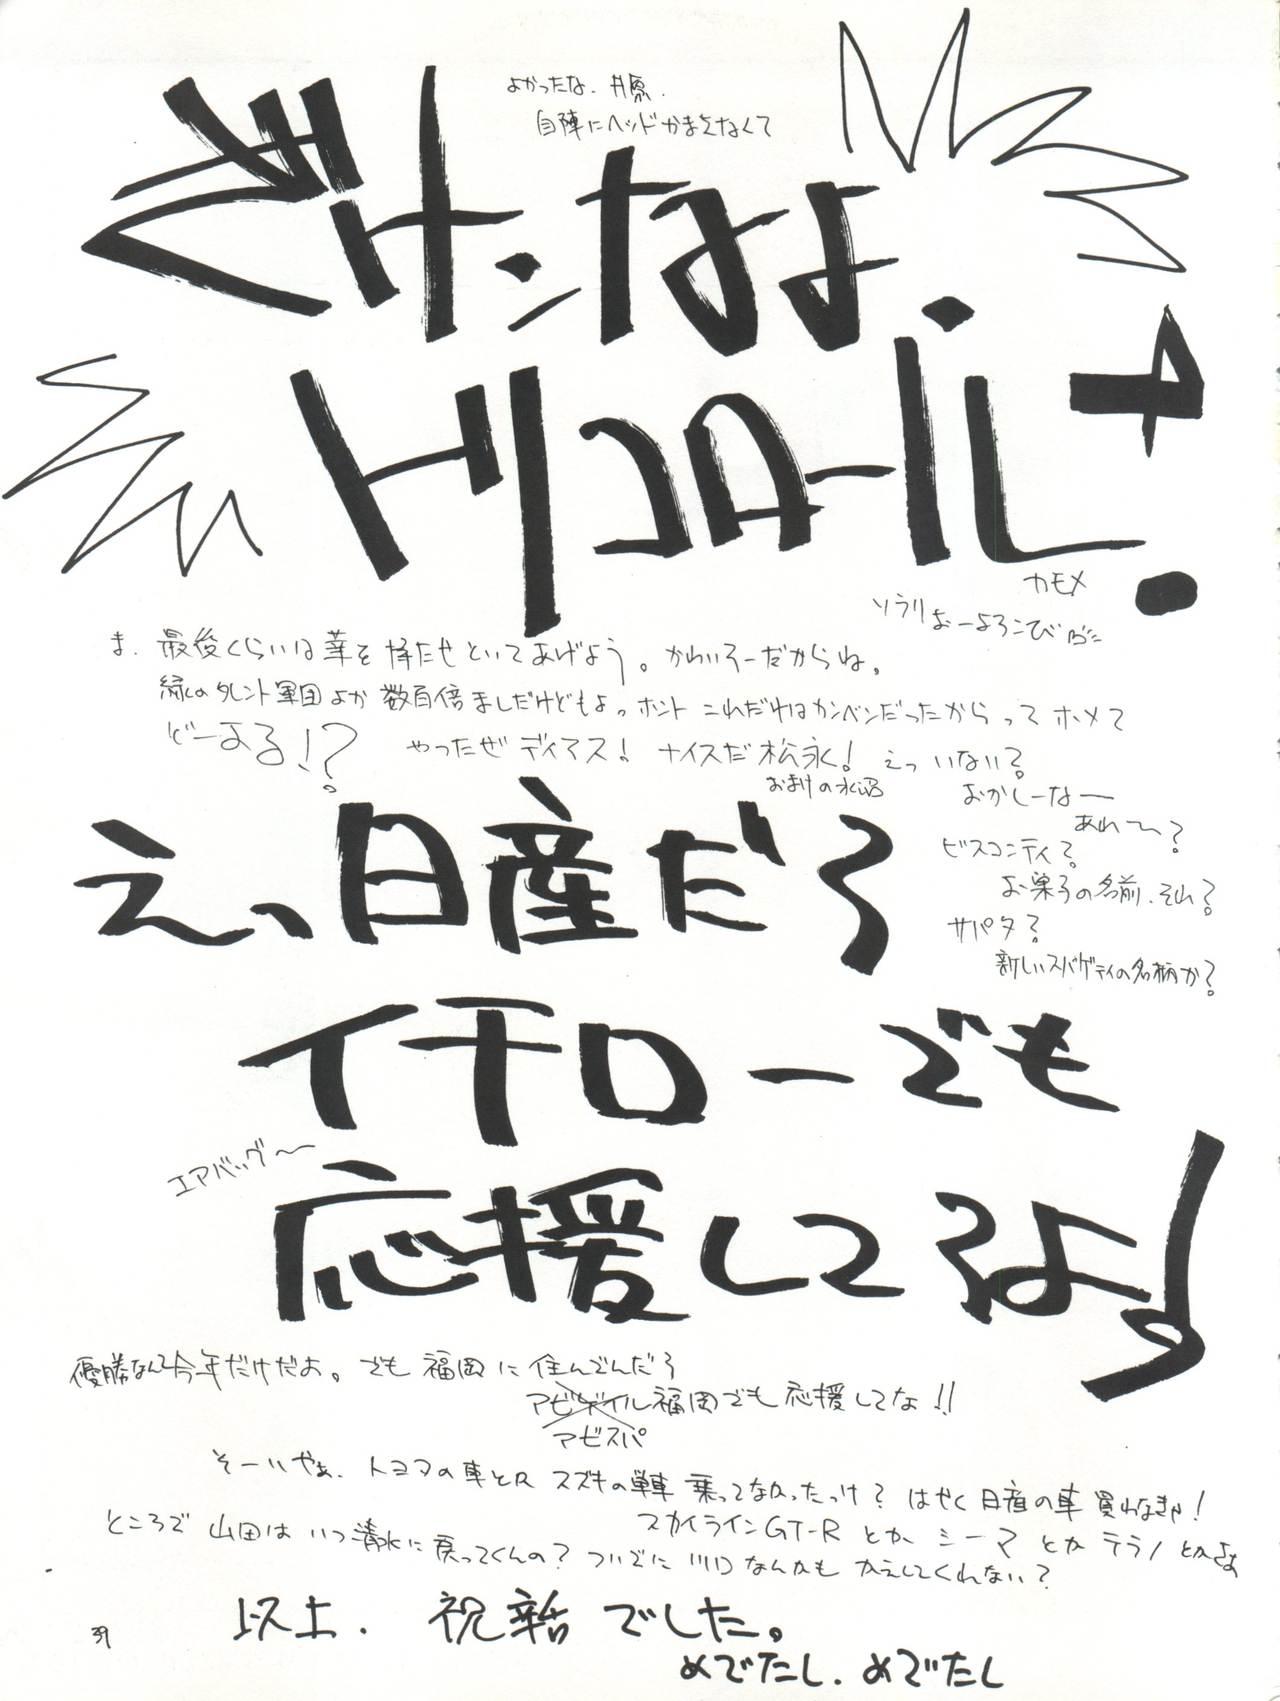 よかったな、井原、
自陣にヘッドかまえなくて
ざけンなよ、
トリコロール!
カモメ
ソラリよーよろこび
ま、最後くらいは華を持たせといてあげよう。かわいそーだからね。
緑のタレント軍団よか数百倍ましだけどもよっ ホント これだけはカンベンだったからってホメて
どーする!?
やったぜディアス! ナイスだ松永! えっ いない?
おまけの水沼
おかしーなー
あれ〜?
ビスコンティ?
お菓子の名前、それ?
サパタ?
新しいスパゲティの名柄か?
えっ、日産だろ
イチローでも
エアバッグ〜
応援してろよ!
優勝なんて今年だけだよ。でも福岡に住んでんだろ
アビゲイル福岡でも応援してな!!
アビスパ
そーいやぁ、トヨタの車とスズキの単車乗ってなかったっけ? はやく日産の車買わなきゃ!
スカイラインGT-Rとか、シーマとかテラノとかよぉ
ところで山田はいつ清水に戻ってくんの? ついでに川口なんかもかえしてくれない?
以上、祝辞でした。
めでたし、めでたし
39